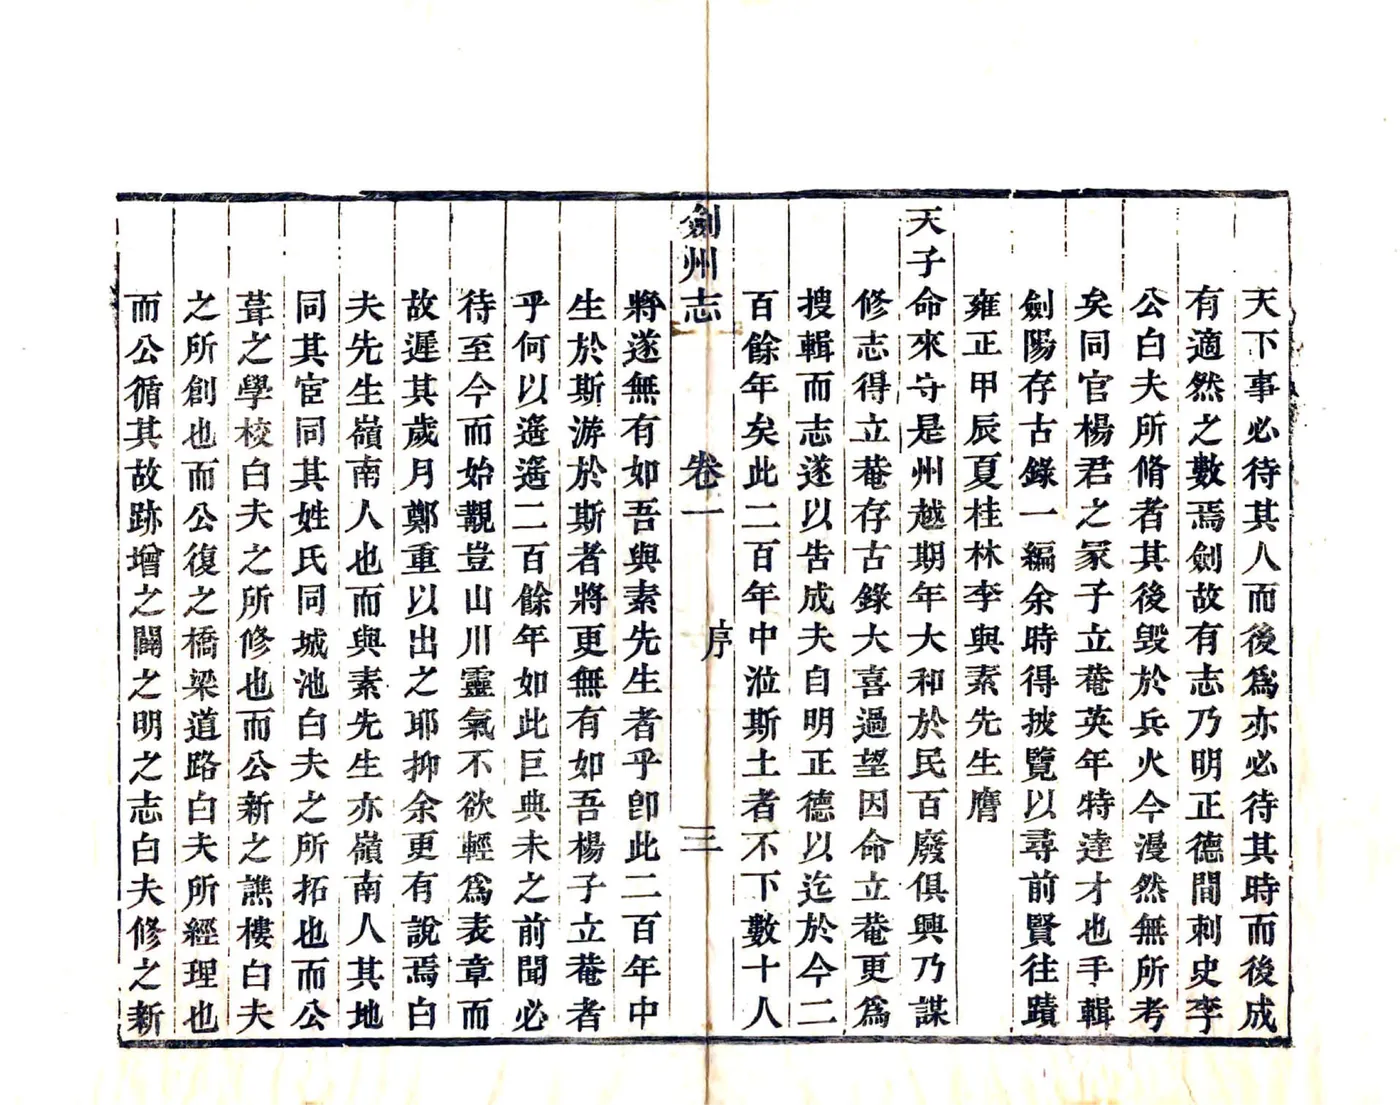 天下事必待其人而後爲亦必待其時而後成
有適然之數焉劍故有志乃明正德間刺史李
公白夫所脩者其後毀於兵火今漫然無所考
矣同官楊君之冡子立菴英年特達才也手輯
劍陽存古錄一編余時得披覽以尋前賢往蹟
雍正甲辰夏桂林李與素先生膺
天子命來守是州越期年大和於民百廢俱興乃謀
修志得立菴存古錄大喜過望因命立菴更爲
搜輯而志遂以告成夫自明正德以迄於今二
百餘年矣此二百年中涖斯土者不下數十人
劍州志 卷一 序 三
將遂無有如吾與素先生者乎卽此二百年中
生於斯游於斯者將更無有如吾楊子立菴者
乎何以遙遙二百餘年如此巨典未之前聞必
待至今而始覯豈山川靈氣不欲輕爲表章而
故遲其歲月鄭重以出之耶抑余更有說焉白
夫先生嶺南人也而與素先生亦嶺南人其地
同其宦同其姓氏同城池白夫之所拓也而公
葺之學校白夫之所修也而公新之譙樓白夫
之所創也而公復之橋梁道路白夫所經理也
而公循其故跡增之闢之明之志白夫修之新